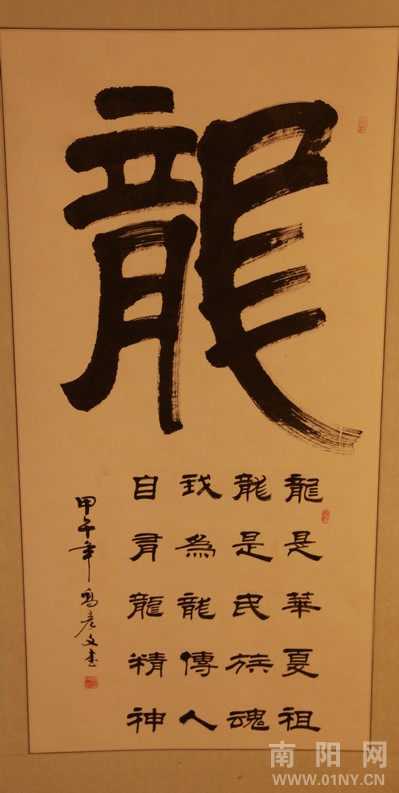 龍
龍是華夏祖
龍是民族魂
我為龍傳人
自有龍精神
甲午年 高彥文書
南阳网
WWW.01NY.CN